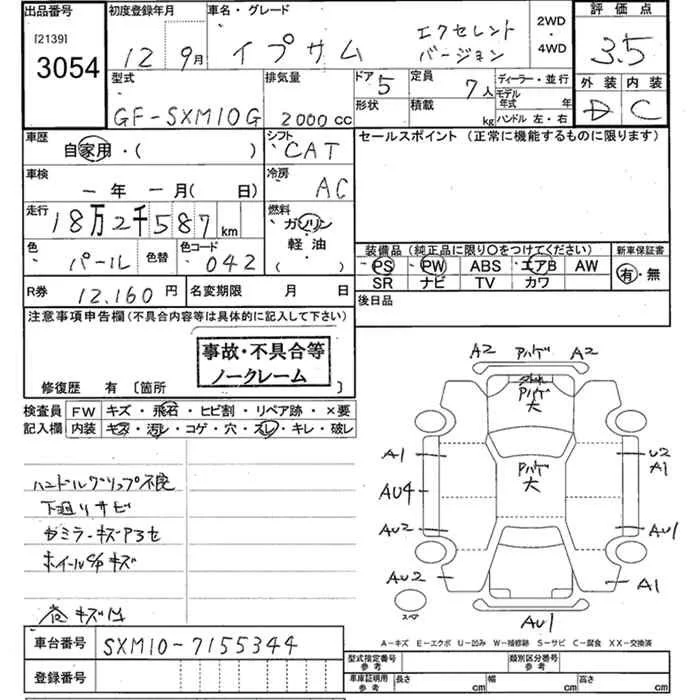 出品番号
[2139]
3054
初度登録年月
12 9月
車名・グレード
イプサム
エクセレント
バージョン
2WD
・
4WD
評価点
3.5
外装 内装
D C
型式
GF-SXM10G
排気量
2000cc
ドア 5
形状
定員 7人
積載 kg
ディーラー・並行
モデル
年式 年
ハンドル 左・右
車歴
自家用・( )
シフト
CAT
セールスポイント (正常に機能するものに限ります)
車検
ー年ー月( 日)
冷房
AC
走行
18万2千587km
燃料
ガソリン
・
軽油
( )
色
パール
色替
色コード
042
装備品(純正品に限り○をつけてください)
PS PW ABS エアB AW
SR ナビ TV カワ
新車保証書
有・無
R券 12,160円
名変期限 月 日
後日品
注意事項申告欄(不具合内容等は具体的に記入して下さい)
事故・不具合等
ノークレーム
修復歴 有〔箇所 〕
検査員
記入欄
FW キズ・飛石・ヒビ割・リペア跡・×要
内装 キズ・汚レ・コゲ・穴・スレ・キレ・破レ
ハンドルグリップ不良
下廻りサビ
ホイールキズ
A2 アハゲ A2
アハゲ
大
アハゲ
大
A1
AU4
AU2
AU2
U2
A1
AU1
A1
AU1
スペア
A-キズ E-エクボ U-凹み W-補修跡 S-サビ C-腐食 XX-交換済
車台番号 SXM10-7155344
登録番号
型式指定番号
参考
類別区分番号
参考
車庫証明用
参考
長さ cm
幅 cm
高さ cm